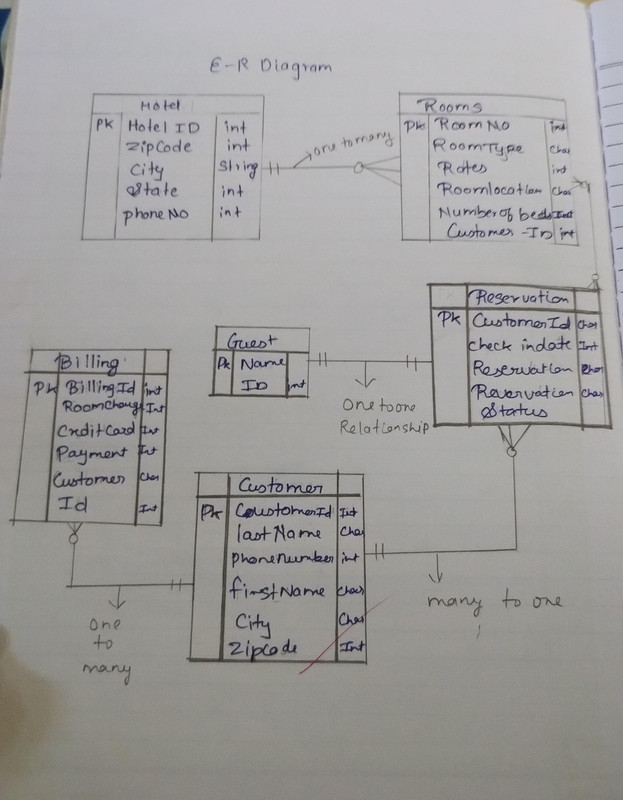 E-R Diagram
Hotel
PK Hotel ID int
ZipCode int
City String
State int
phone No int
one to many
Rooms
PK Room No int
RoomType Char
Rates int
Roomlocation Char
Number of beds Int
Customer-ID int
Reservation
PK CustomerId Char
check indate Int
Reservation Char
Reservation Char
Status
Guest
PK Name
ID int
One to one
Relationship
Billing
PK Billing Id int
Int
Credit Card Int
Payment Int
Customer Char
Id Int
Customer
PK CustomerId Int
last Name Char
phonenumber int
first Name Char
City Char
Zipcode Int
one
to
many
many to one